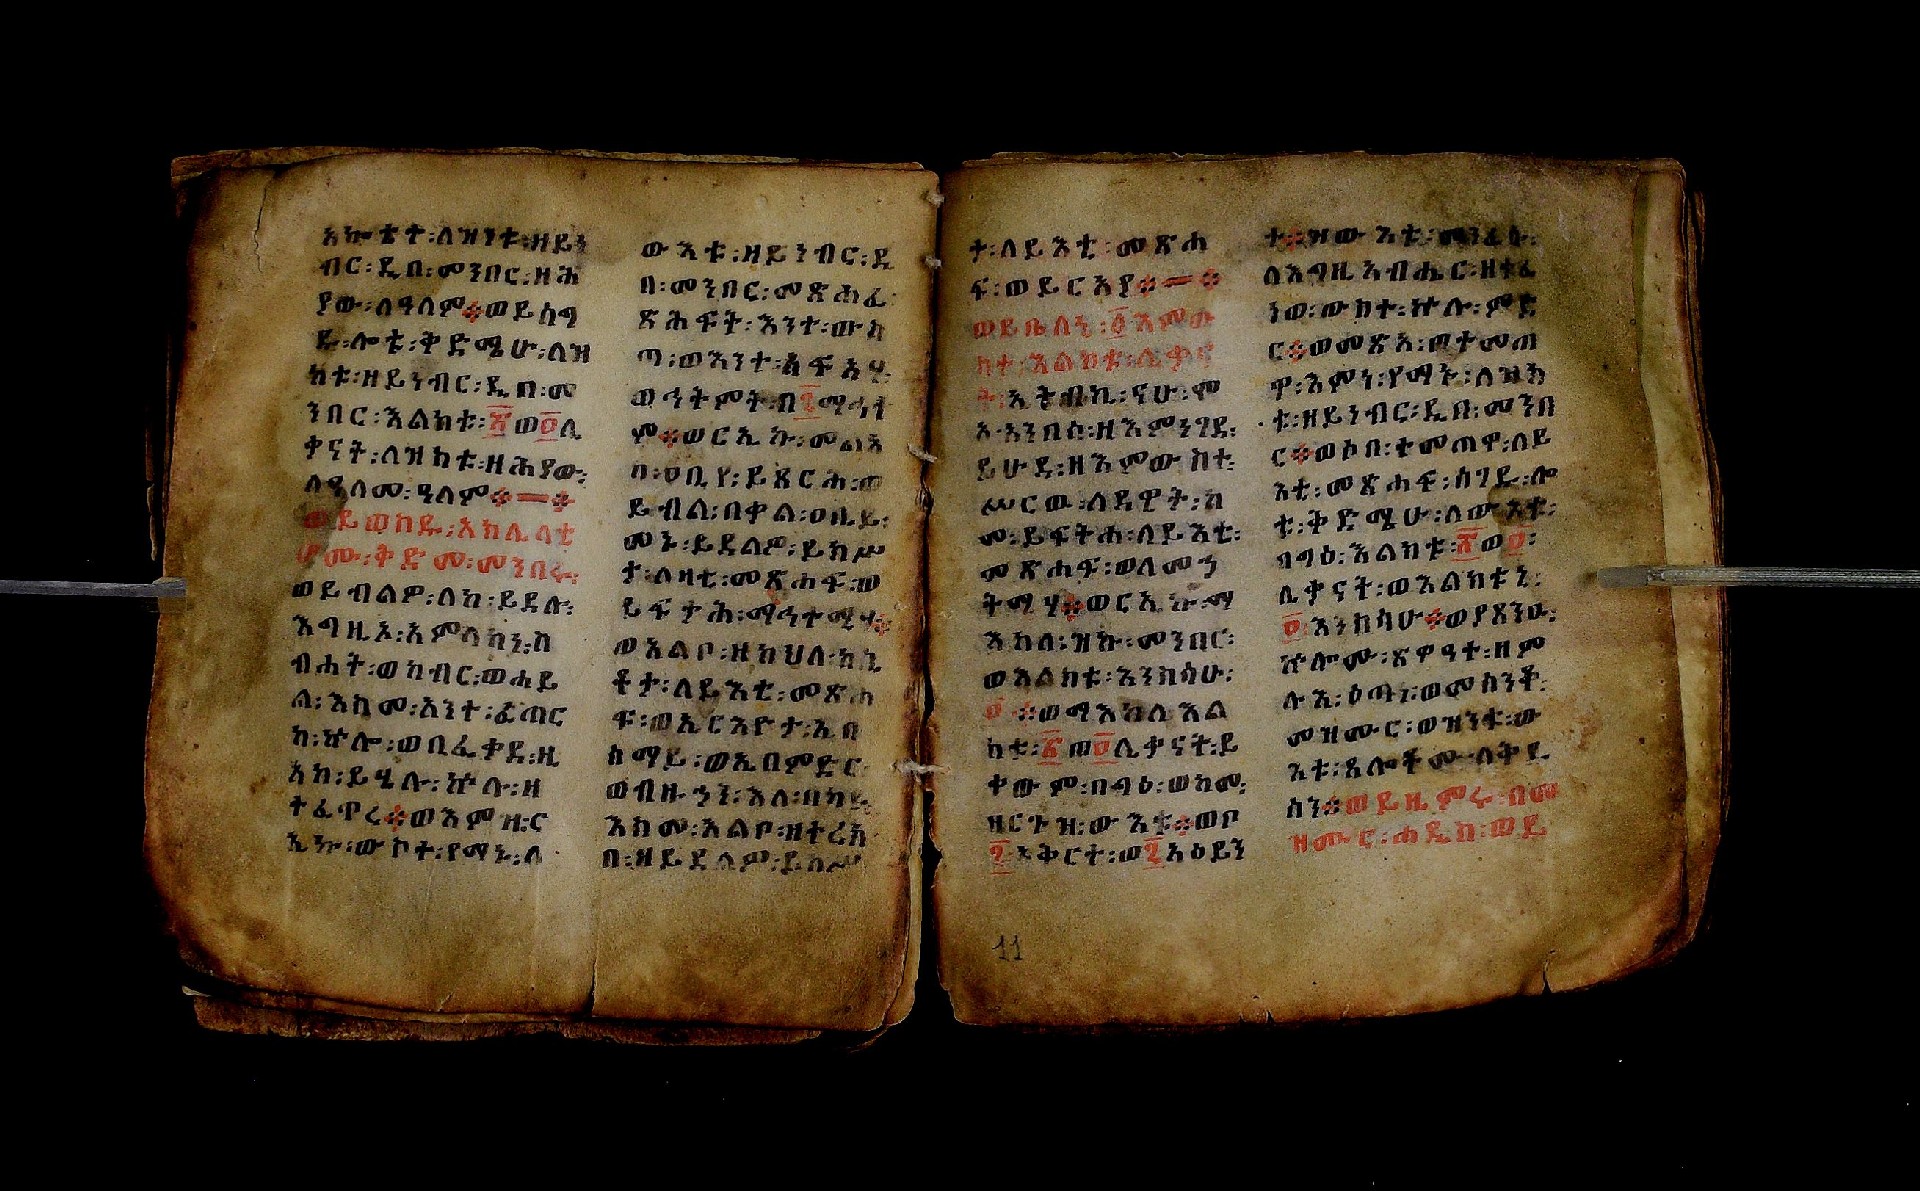 አኰቴተ፡ለዝንቱ፡ዘይነ
ብር፡ዲበ፡መንበር፡ዘሕ
ያው፡ለዓለም፨ወይሰግ
ዱ፡ሎቱ፡ቅድሜሁ፡ለዝ
ክቱ፡ዘይነብር፡ዲበ፡መ
ንበር፡እልክቱ፡፳ወ፬ሊ
ቃናት፡ለዝክቱ፡ዘሕያው፡
ለዓለመ፡ዓለም፨—፨
ወይወክዱ፡አክሊላቲ
ሆሙ፡ቅድመ፡መንበሩ፡
ወይብልዎ፡ለከ፡ይደሉ፡
እግዚኦ፡አምላክነ፡ስ
ብሐት፡ወክብር፡ወኀይ
ል፡እስመ፡አንተ፡ፈጠር
ከ፡ኵሎ፡ወበፈቃደ፡ዚ
አከ፡ይሄሉ፡ኵሉ፡ዘ
ተፈጥረ፨ወእምዝ፡ር
ኢኩ፡ውስተ፡የማኑ፡ለ
ውእቱ፡ዘይነብር፡ዲ
በ፡መንበር፡መጽሐፈ፡
ጽሕፍት፡እንተ፡ውስ
ጣ፡ወእንተ፡አፍአሃ፡
ወኅትምት፡በ፯ማኅተ
ም፨ወርኢኩ፡መልአ
ከ፡ዐቢየ፡ይጸርሕ፡ወ
ይብል፡በቃል፡ዐቢይ፡
መኑ፡ይደልዎ፡ይክሥ
ታ፡ለዛቲ፡መጽሐፍ፡ወ
ይፍታሕ፡ማኅተሚሃ፨
ወአልቦ፡ዘከህለ፡ከሢ
ቶታ፡ለይእቲ፡መጽሐ
ፍ፡ወኢርእዮታ፡ኢበ
ሰማይ፡ወኢበምድር፡
ወብዙኀን፡እለ፡በከዩ፡
እስመ፡አልቦ፡ዘተረክ
በ፡ዘይደልዎ፡ይክሥ
ታ፡ለይእቲ፡መጽሐ
ፍ፡ወይርአያ፨—፨
ወይቤለኒ፡፩እምው
ስተ፡እልክቱ፡ሊቃና
ት፡ኢትብኪ፡ናሁ፡ሞ
አ፡አንበሳ፡ዘእምነገደ፡
ይሁዳ፡ዘእምውስተ፡
ሥርወ፡ለዳዊት፡ከ
መ፡ይፍትሐ፡ለይእቲ፡
መጽሐፍ፡ወለመኅ
ትማሃ፨ወርኢኩ፡ማ
እከለ፡ዝኩ፡መንበር፡
ወእልክቱ፡እንስሳሁ፡
፬፨ወማእከለ፡እል
ክቱ፡፳ወ፬ሊቃናት፡ይ
ቀውም፡በግዕ፡ወከመ፡
ዘርጉዝ፡ውእቱ፨ወቦ
፯አቅርንተ፡ወ፯አዕይን
ተ፨ዝውእቱ፡መንፈሱ፡
ለእግዚአብሔር፡ዘተፈ
ነወ፡ውስተ፡ኵሉ፡ምድ
ር፨ወመጽአ፡ወተመጠ
ዋ፡እምነ፡የማኑ፡ለዝክ
ቱ፡ዘይነብር፡ዲበ፡መንበ
ር፨ወሶበ፡ተመጠዋ፡ለይ
እቲ፡መጽሐፍ፡ሰገዱ፡ሎ
ቱ፡ቅድሜሁ፡ለውእቱ፡
በግዕ፡እልክቱ፡፳ወ፬፡
ሊቃናት፡ወእልክቱኒ፡
፬፡እንስሳሁ፨ወያጸንዑ፡
ኵሎሙ፡ጽዋዓተ፡ዘም
ሉእ፡ዕጣነ፡ወመሰንቆ፡
መዝሙር፡ወዝንቱ፡ው
እቱ፡ጸሎቶሙ፡ለቅዱ
ሳን፨ወይዜምሩ፡በመ
ዝሙር፡ሐዲስ፡ወይ
11